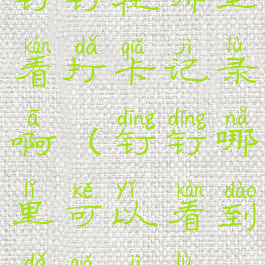 kàn dǎ qiǎ jì lù
看打卡记录
ā dīng dīng nǎ
啊（钉钉哪
lǐ kě yǐ kàn dào
里可以看到